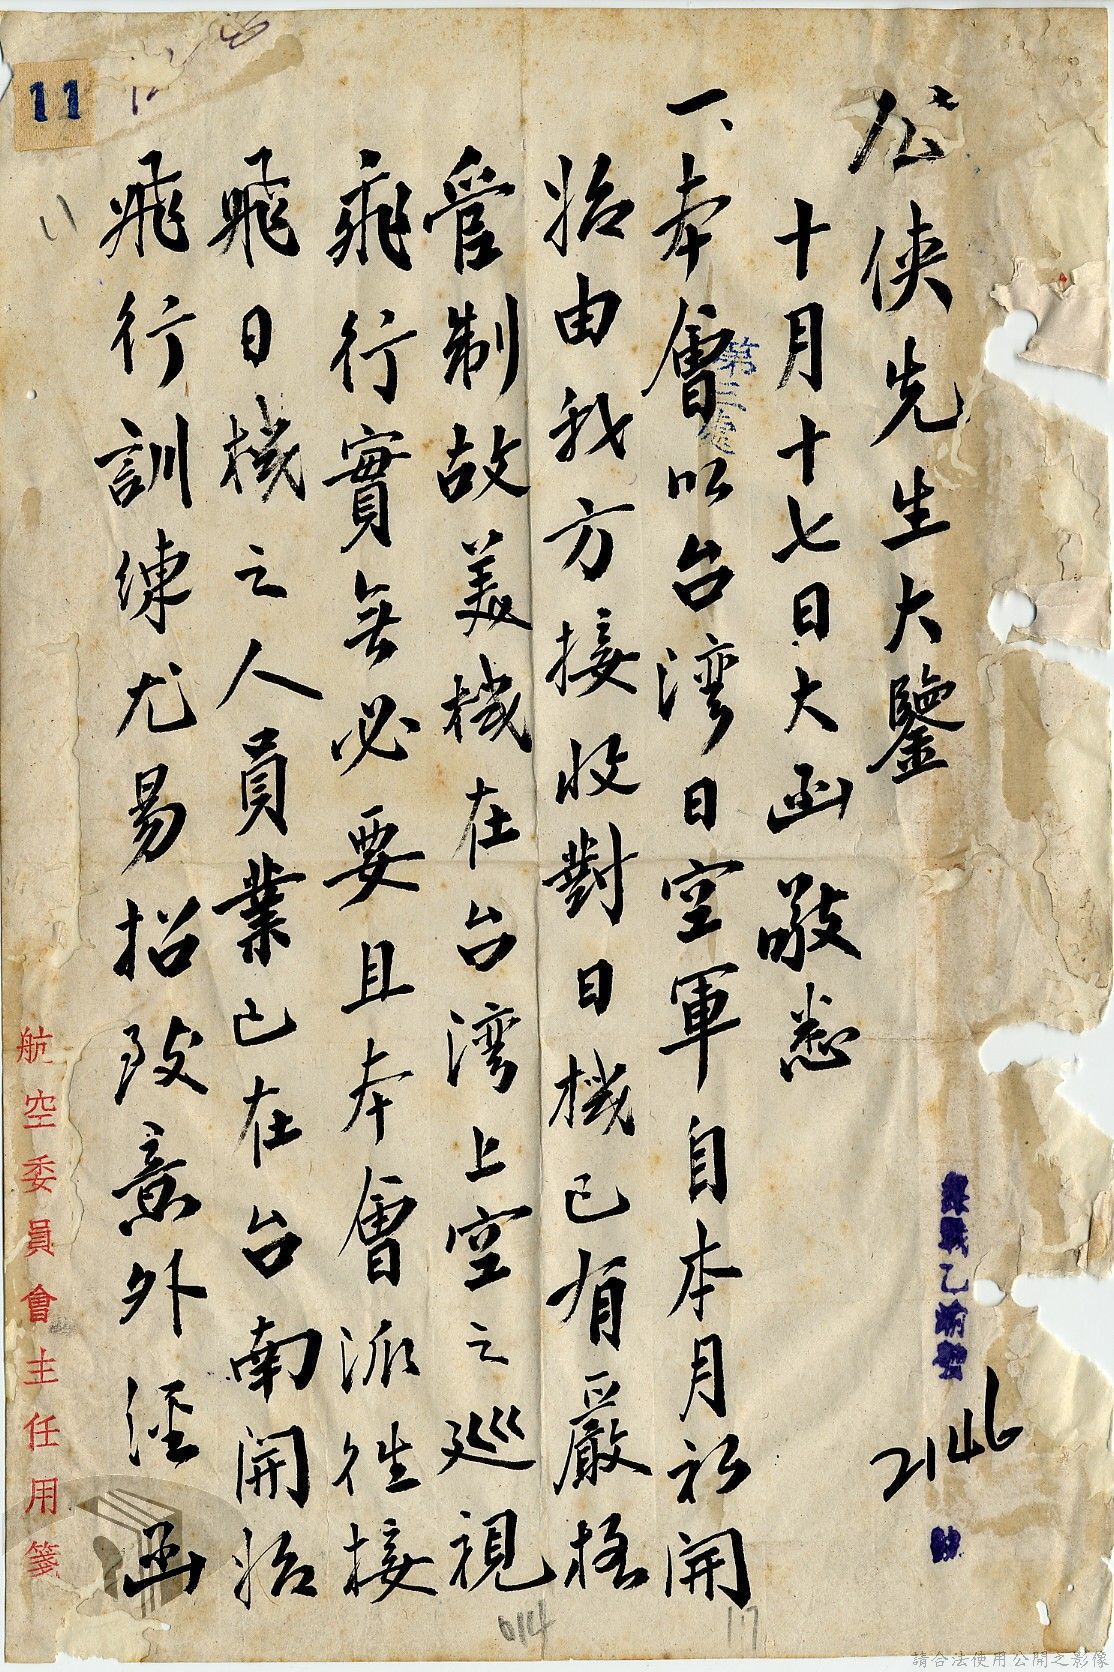 公俠先生大鑒
十月十七日大函敬悉
一、本會以台湾日空軍自本月初開
始由我方接收對日機已有嚴格
管制故美機在台湾上空之巡視
飛行實無必要且本會派往接
飛日機之人員業已在台南開始
飛行訓練尤易招致意外逕函
航空委員會主任用箋
11
第三處
2146
號
614
17
請合法使用公開之影像